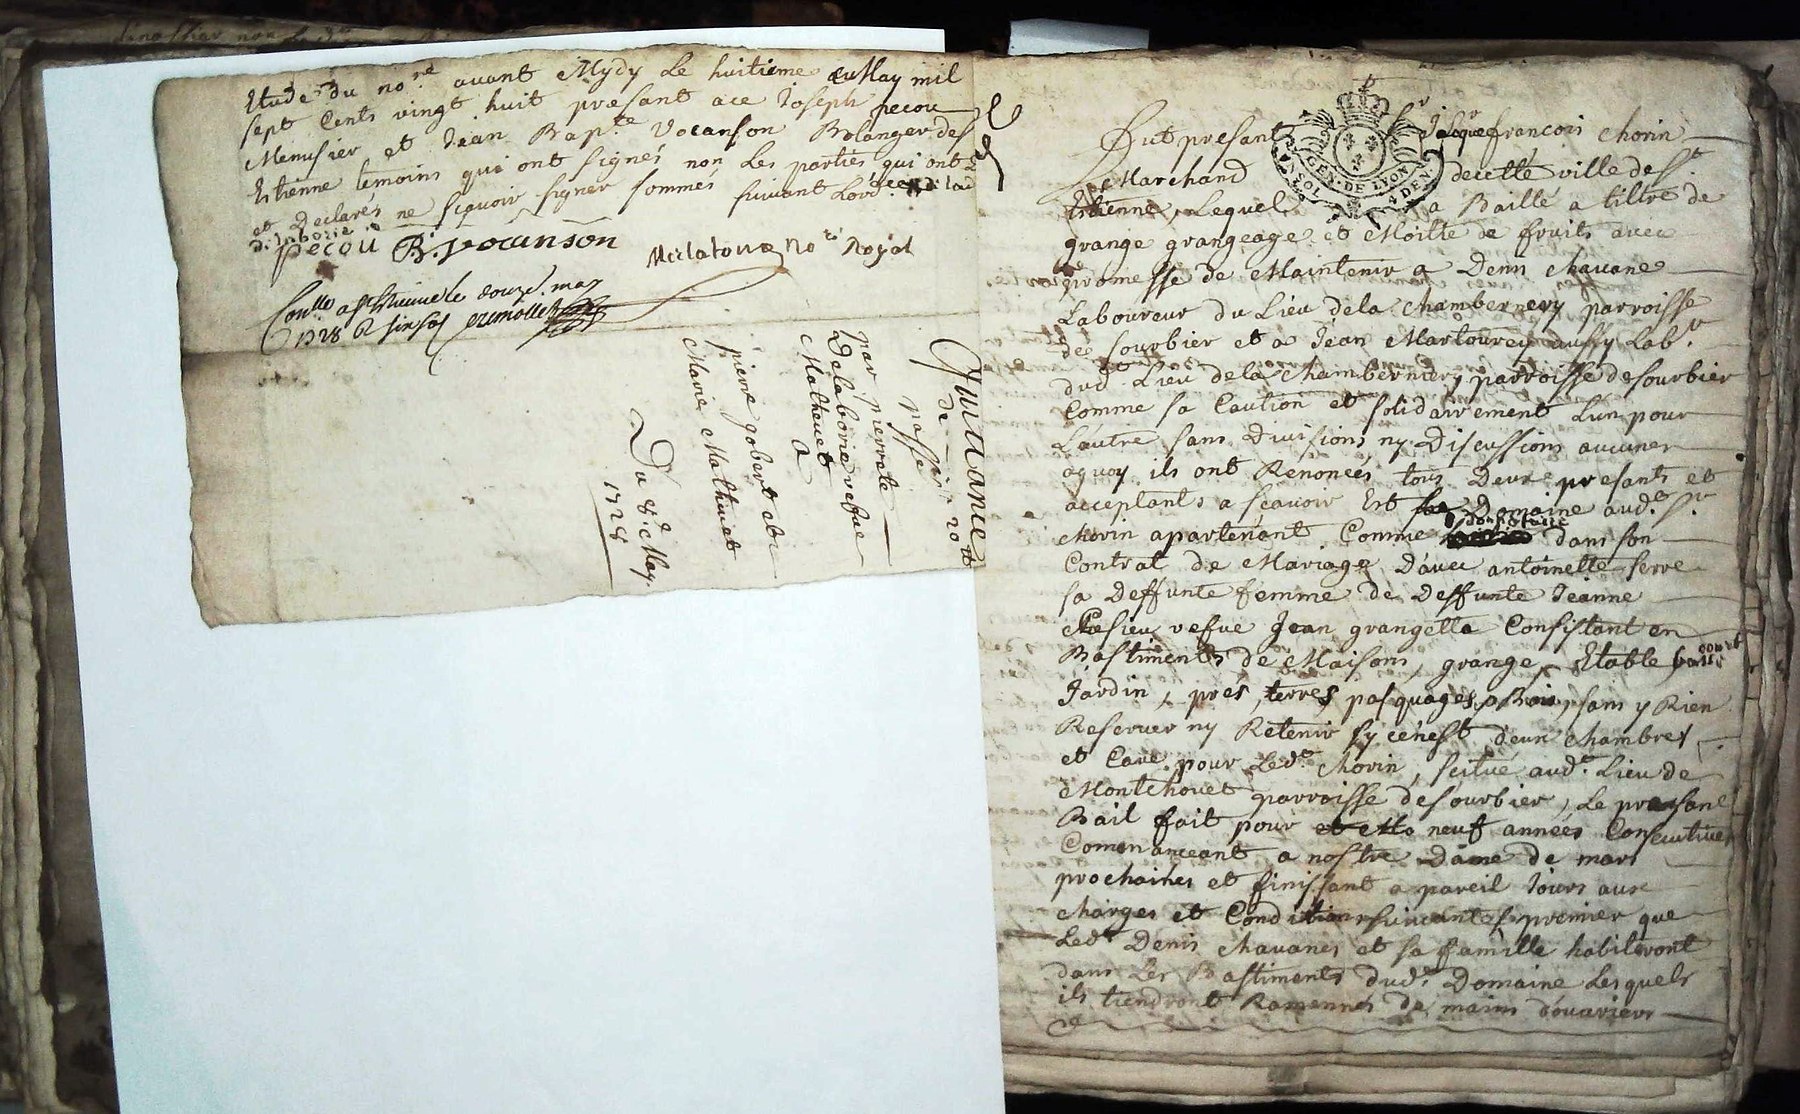 Etude du no.re avant Mydy Le huitieme du May mil
sept Cents vingt huit presant a ce Joseph pecou
Menusier et Jean Bap.te Vocanson Bolanger de S.t
Etienne temoins qui ont signés non Les parties qui ont
et Declarés ne sçavoir signer sommés suivant Lord.ce
pecou B. Vocanson
Delatour No.re Royal
Con.lle a S.t Estienne le douze may
1728
Quittance
de 20 #
passé
par pierrette
Delaborie vefue
Mathevet
a
pierre gobert et
Marie Mathevet
Du 8.e May
1728
Fut presant S.r Jacque francois chorin
GEN. DE LYON
SOL 4 DEN
Marchand de cette ville de S.t
Etienne, Lequel a Baillé a tiltre de
grange grangeage et Moitié de fruits avec
promesse de Maintenir a Denis chavane
Laboureur du Lieu de la chambernery parroisse
de sourbier et a Jean Martourey aussy Lab.r
dud. Lieu de la chambernery parroisse de sourbier
Comme sa Caution et solidairement Lun pour
Lautre sans Divisions ny Discussions aucunes
a quoy ils ont Renoncés tous Deux presants et
acceptants a sçavoir Est Domaine aud.t S.r
chorin apartenant Comme donataire dans son
Contrat de Mariage D'avec antoinette serre
sa Deffunte femme de Deffunte Jeanne
vefue Jean grangette Consistant en
Bastiments de Maisons, grange, Etable, court
Jardin, prés, terres, pasquages, Bois, sans y Rien
Reserver ny Retenir sy ce nest deux chambres
et Cave pour Led.t chorin, scitué aud.t Lieu de
Montchouet parroisse de sourbier, Le presant
Bail fait pour neuf années Consecutives
Commanceant a nostre Dame de mars
prochaines et finissant a pareil Jours aux
charges et Conditions suivantes, premier que
Led.t Denis chavanes et sa famille habiteront
dans Les Bastiments dud.t Domaine Lesquels
ils tiendront Ramennés de mains d'ouvriers